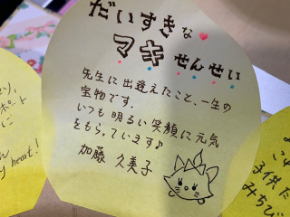 だいすきな
マキせんせい
先生に出逢えたこと、一生の
宝物です。
いつも明るい笑顔に元気
をもらっています♪
加藤 久美子
ポート
に
y heart!
ご
ゆ
子供た
みちび